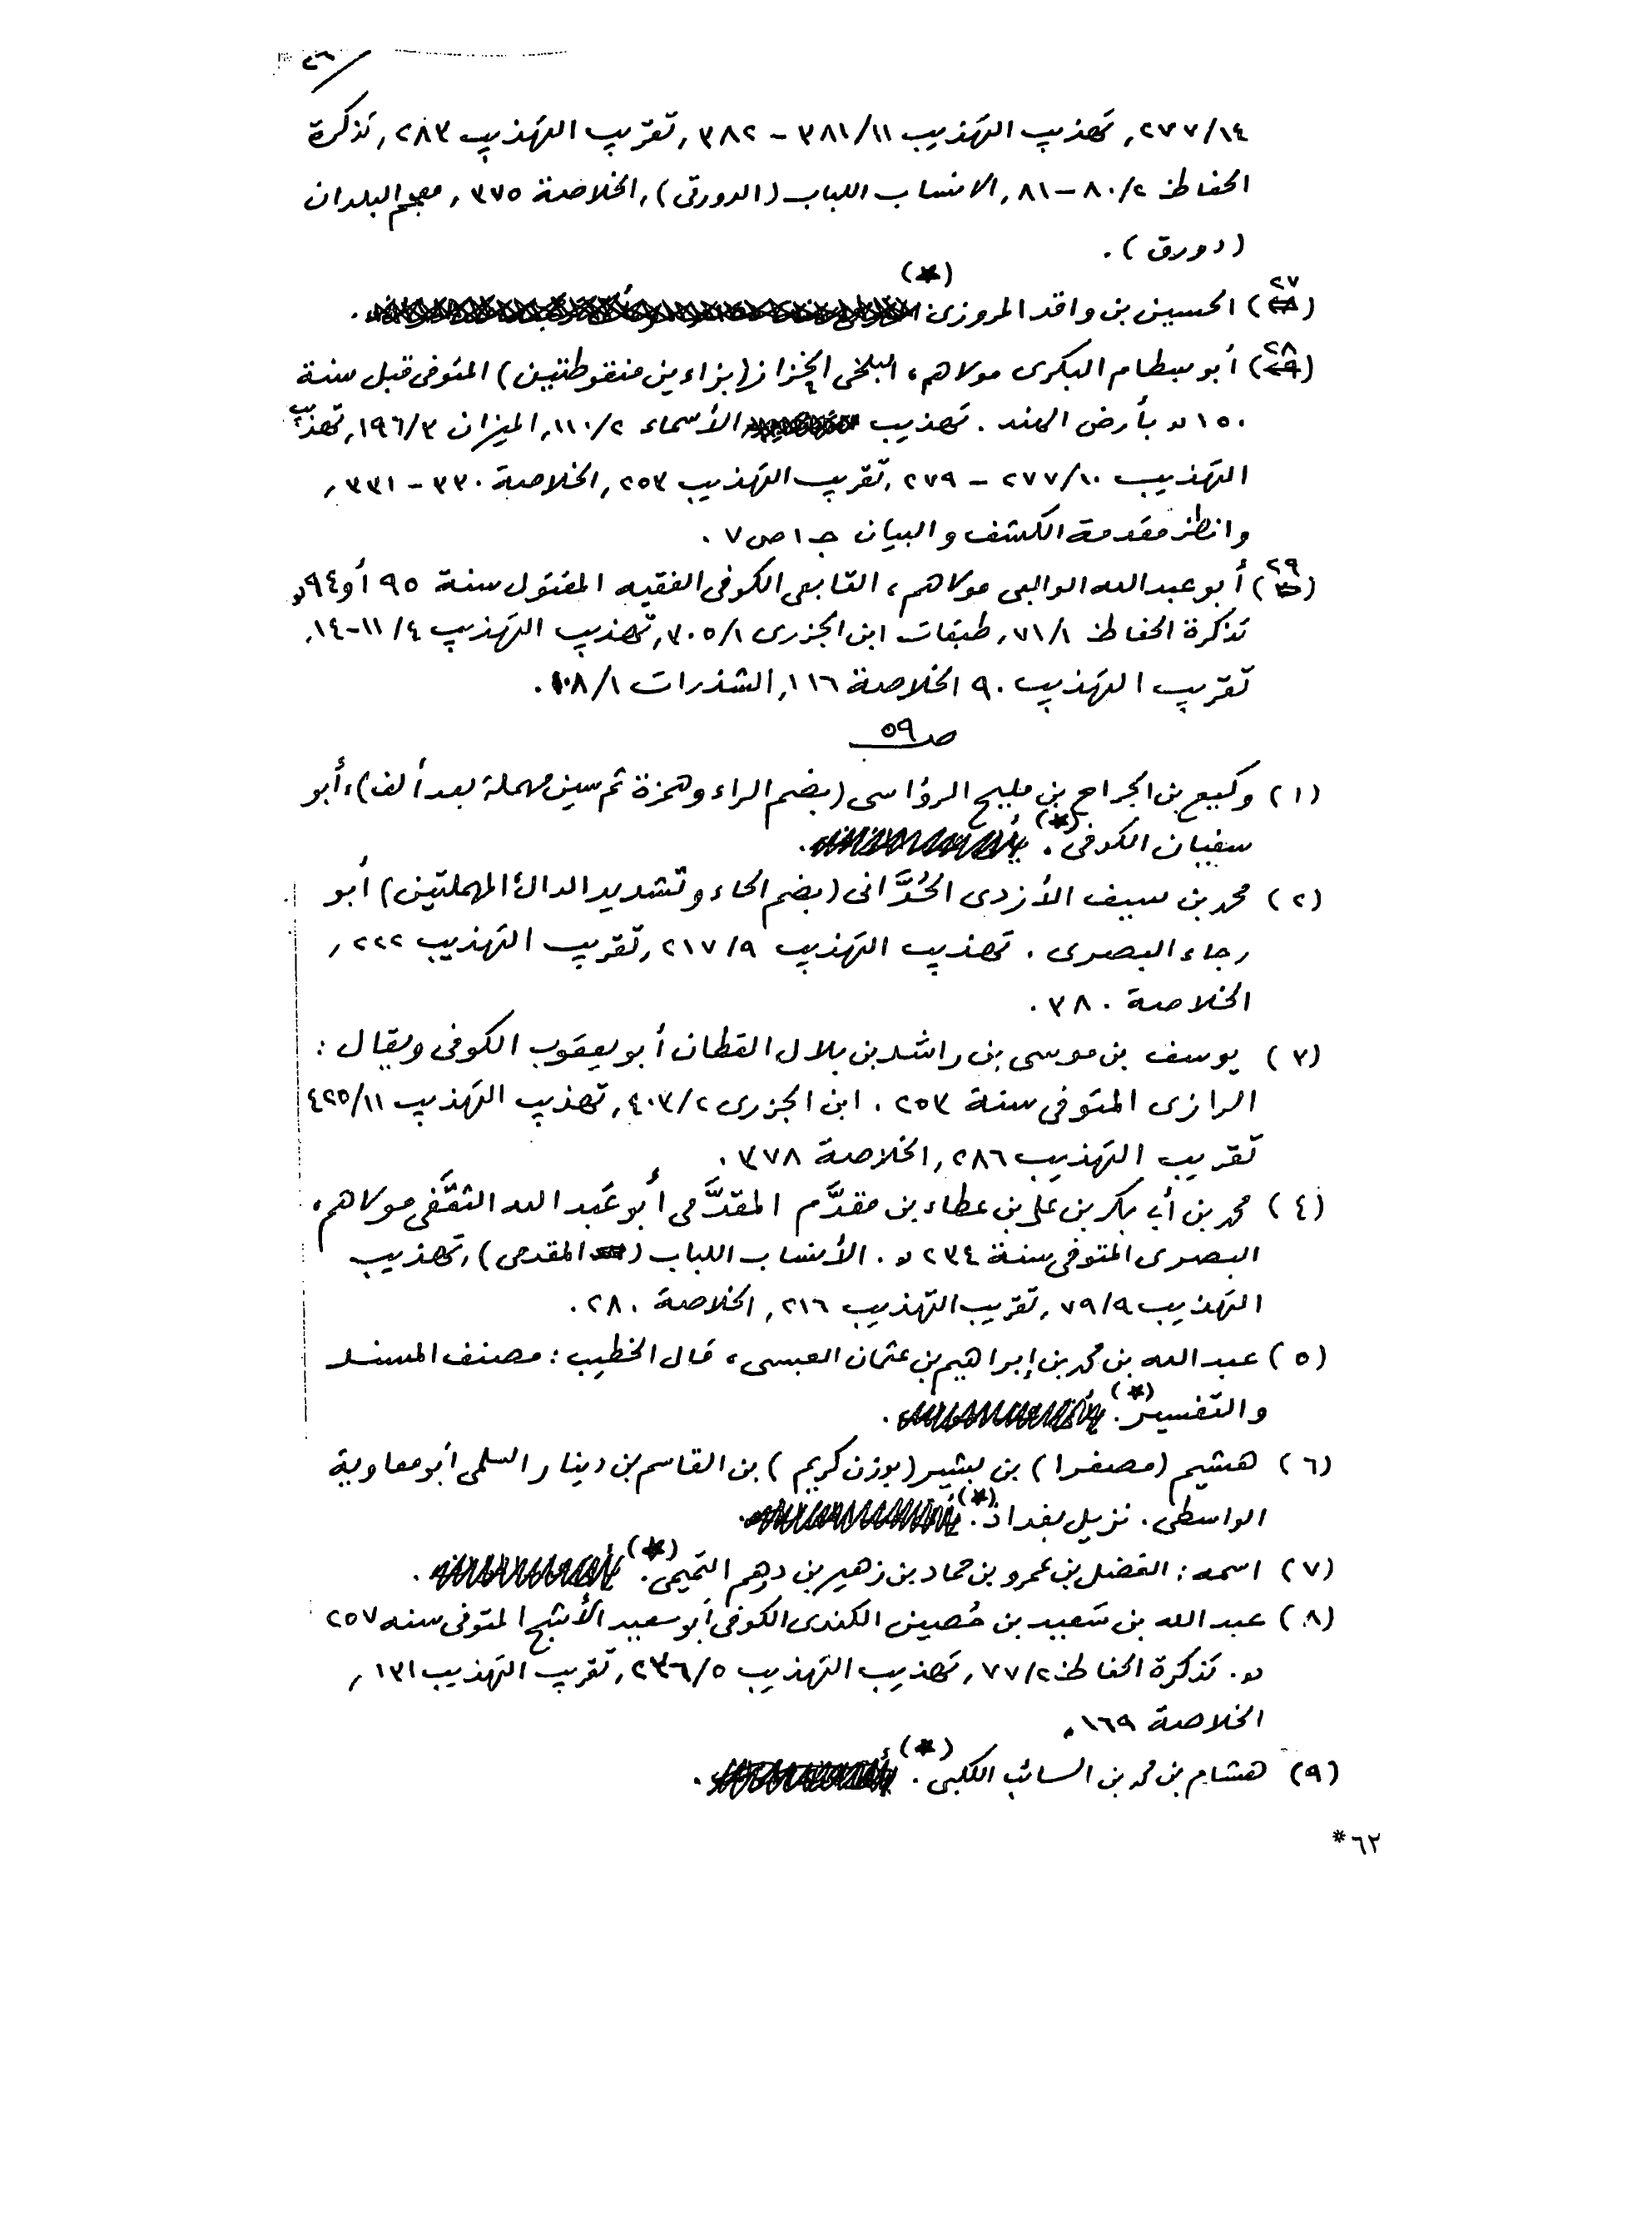 ٢٦
٢٧٧/١٤، تهذيب التهذيب ٣٨١/١١ – ٣٨٢، تقريب التهذيب ٢٨٣، تذكرة
الحفاظ ٨٠/٢ – ٨١، الانساب اللباب (الدورقى)، الخلاصة ٣٧٥، معجم البلدان
(دورق).
(٢٧) الحسين بن واقد المروزى (★)
(٢٨) أبو بسطام البكرى مولاهم، البلخى الخزاز (بزاءين منقوطتين) المتوفى قبل سنة
١٥٠ ه بأرض الهند. تهذيب الأسماء ١١٠/٢، الميزان ١٩٦/٣، تهذيب
التهذيب ٢٧٧/١٠ – ٢٧٩، تقريب التهذيب ٢٥٣، الخلاصة ٣٣٠ – ٣٣١،
وانظر مقدمة الكشف والبيان جـ ١ ص ٧.
(٢٩) أبو عبد الله الوالبى مولاهم، التابعى الكوفى الفقيه المقتول سنة ٩٥ أو ٩٤ ه
تذكرة الحفاظ ٧١/١، طبقات ابن الجزرى ٣٠٥/١، تهذيب التهذيب ١١/٤-١٤،
تقريب التهذيب ٩٠ الخلاصة ١١٦، الشذرات ١٠٨/١.
صـ ٥٩
(١) وكيع بن الجراح بن مليح الرؤاسى (بضم الراء وهمزة ثم سين مهملة بعد ألف)، أبو
سفيان الكوفى. (★)
(٢) محمد بن سيف الأزدى الحُدَّانى (بضم الحاء وتشديد الدال المهملتين) أبو
رجاء البصرى. تهذيب التهذيب ٢١٧/٩، تقريب التهذيب ٢٢٢،
الخلاصة ٣٨٠.
(٣) يوسف بن موسى بن راشد بن بلال القطان أبو يعقوب الكوفى ويقال:
الرازى المتوفى سنة ٢٥٣. ابن الجزرى ٤٠٣/٢، تهذيب التهذيب ٤٢٥/١١
تقريب التهذيب ٢٨٦، الخلاصة ٣٧٨.
(٤) محمد بن أبى بكر بن على بن عطاء بن مقدَّم المقدَّمى أبو عَبد الله الثقَفى مولاهم،
البصرى المتوفى سنة ٢٣٤ ه. الأنساب اللباب (المقدمى)، تهذيب
التهذيب ٧٩/٩، تقريب التهذيب ٢١٦، الخلاصة ٢٨٠.
(٥) عبد الله بن محمد بن إبراهيم بن عثمان العبسى، قال الخطيب: مصنف المسند
والتفسير. (★)
(٦) هشيم (مصغرا) بن بشير (بوزن كريم) بن القاسم بن دينار السلمى أبو معاوية
الواسطى. نزيل بغداد. (★)
(٧) اسمه: الفضل بن عمرو بن حماد بن زهير بن درهم التميمى. (★)
(٨) عبد الله بن سَعيد بن حُصين الكندى الكوفى أبو سعيد الأشج المتوفى سنه ٢٥٧
ه. تذكرة الحفاظ ٧٧/٢، تهذيب التهذيب ٢٣٦/٥، تقريب التهذيب ١٣١،
الخلاصة ١٦٩.
(٩) هشام بن محمد بن السائب الكلبى. (★)
٦٢*